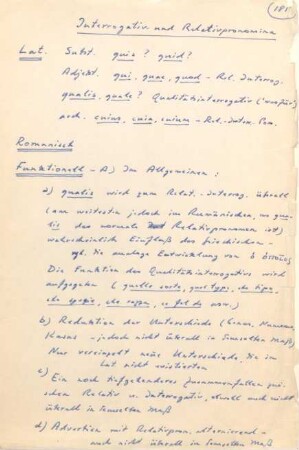 181
Interrogativ und Relativpronomina
Lat. Subst. quis? quid?
Adjekt. qui, quae, quod - Rel. Interrog.
qualis, quale? Qualitätsinterrogativ (was für)
arch. cuius, cuia, cuium - Rel. Inter. Pos.
Romanisch
Funktionell - A) Im Allgemeinen:
a) qualis wird zum Relat. Interrog. überall
(am weitesten jedoch im Rumänischen, wo qua-
lis das normale Relativpronomen ist)
wahrscheinlich Einfluß des Griechischen -
vgl. die analoge Entwicklung von ὁ ὁποῖος
Die Funktion des Qualitätsinterrogativs wird
aufgegeben (quelle sorte, quel type, de tipo,
che specie, che razza, ce fel de usw.)
b) Reduktion der Unterschiede (Genus, Numerus,
Kasus - jedoch nicht überall in demselben Maß)
Nur vereinzelt neue Unterschiede, die im
Lat nicht existierten
c) Ein noch tiefgehenderes Zusammenfallen zwi-
schen Relativ u. Interrogativ, obwohl auch nicht
überall in demselben Maß
d) Adverbien mit Relativpron. alternierend -
auch nicht überall in demselben Maß